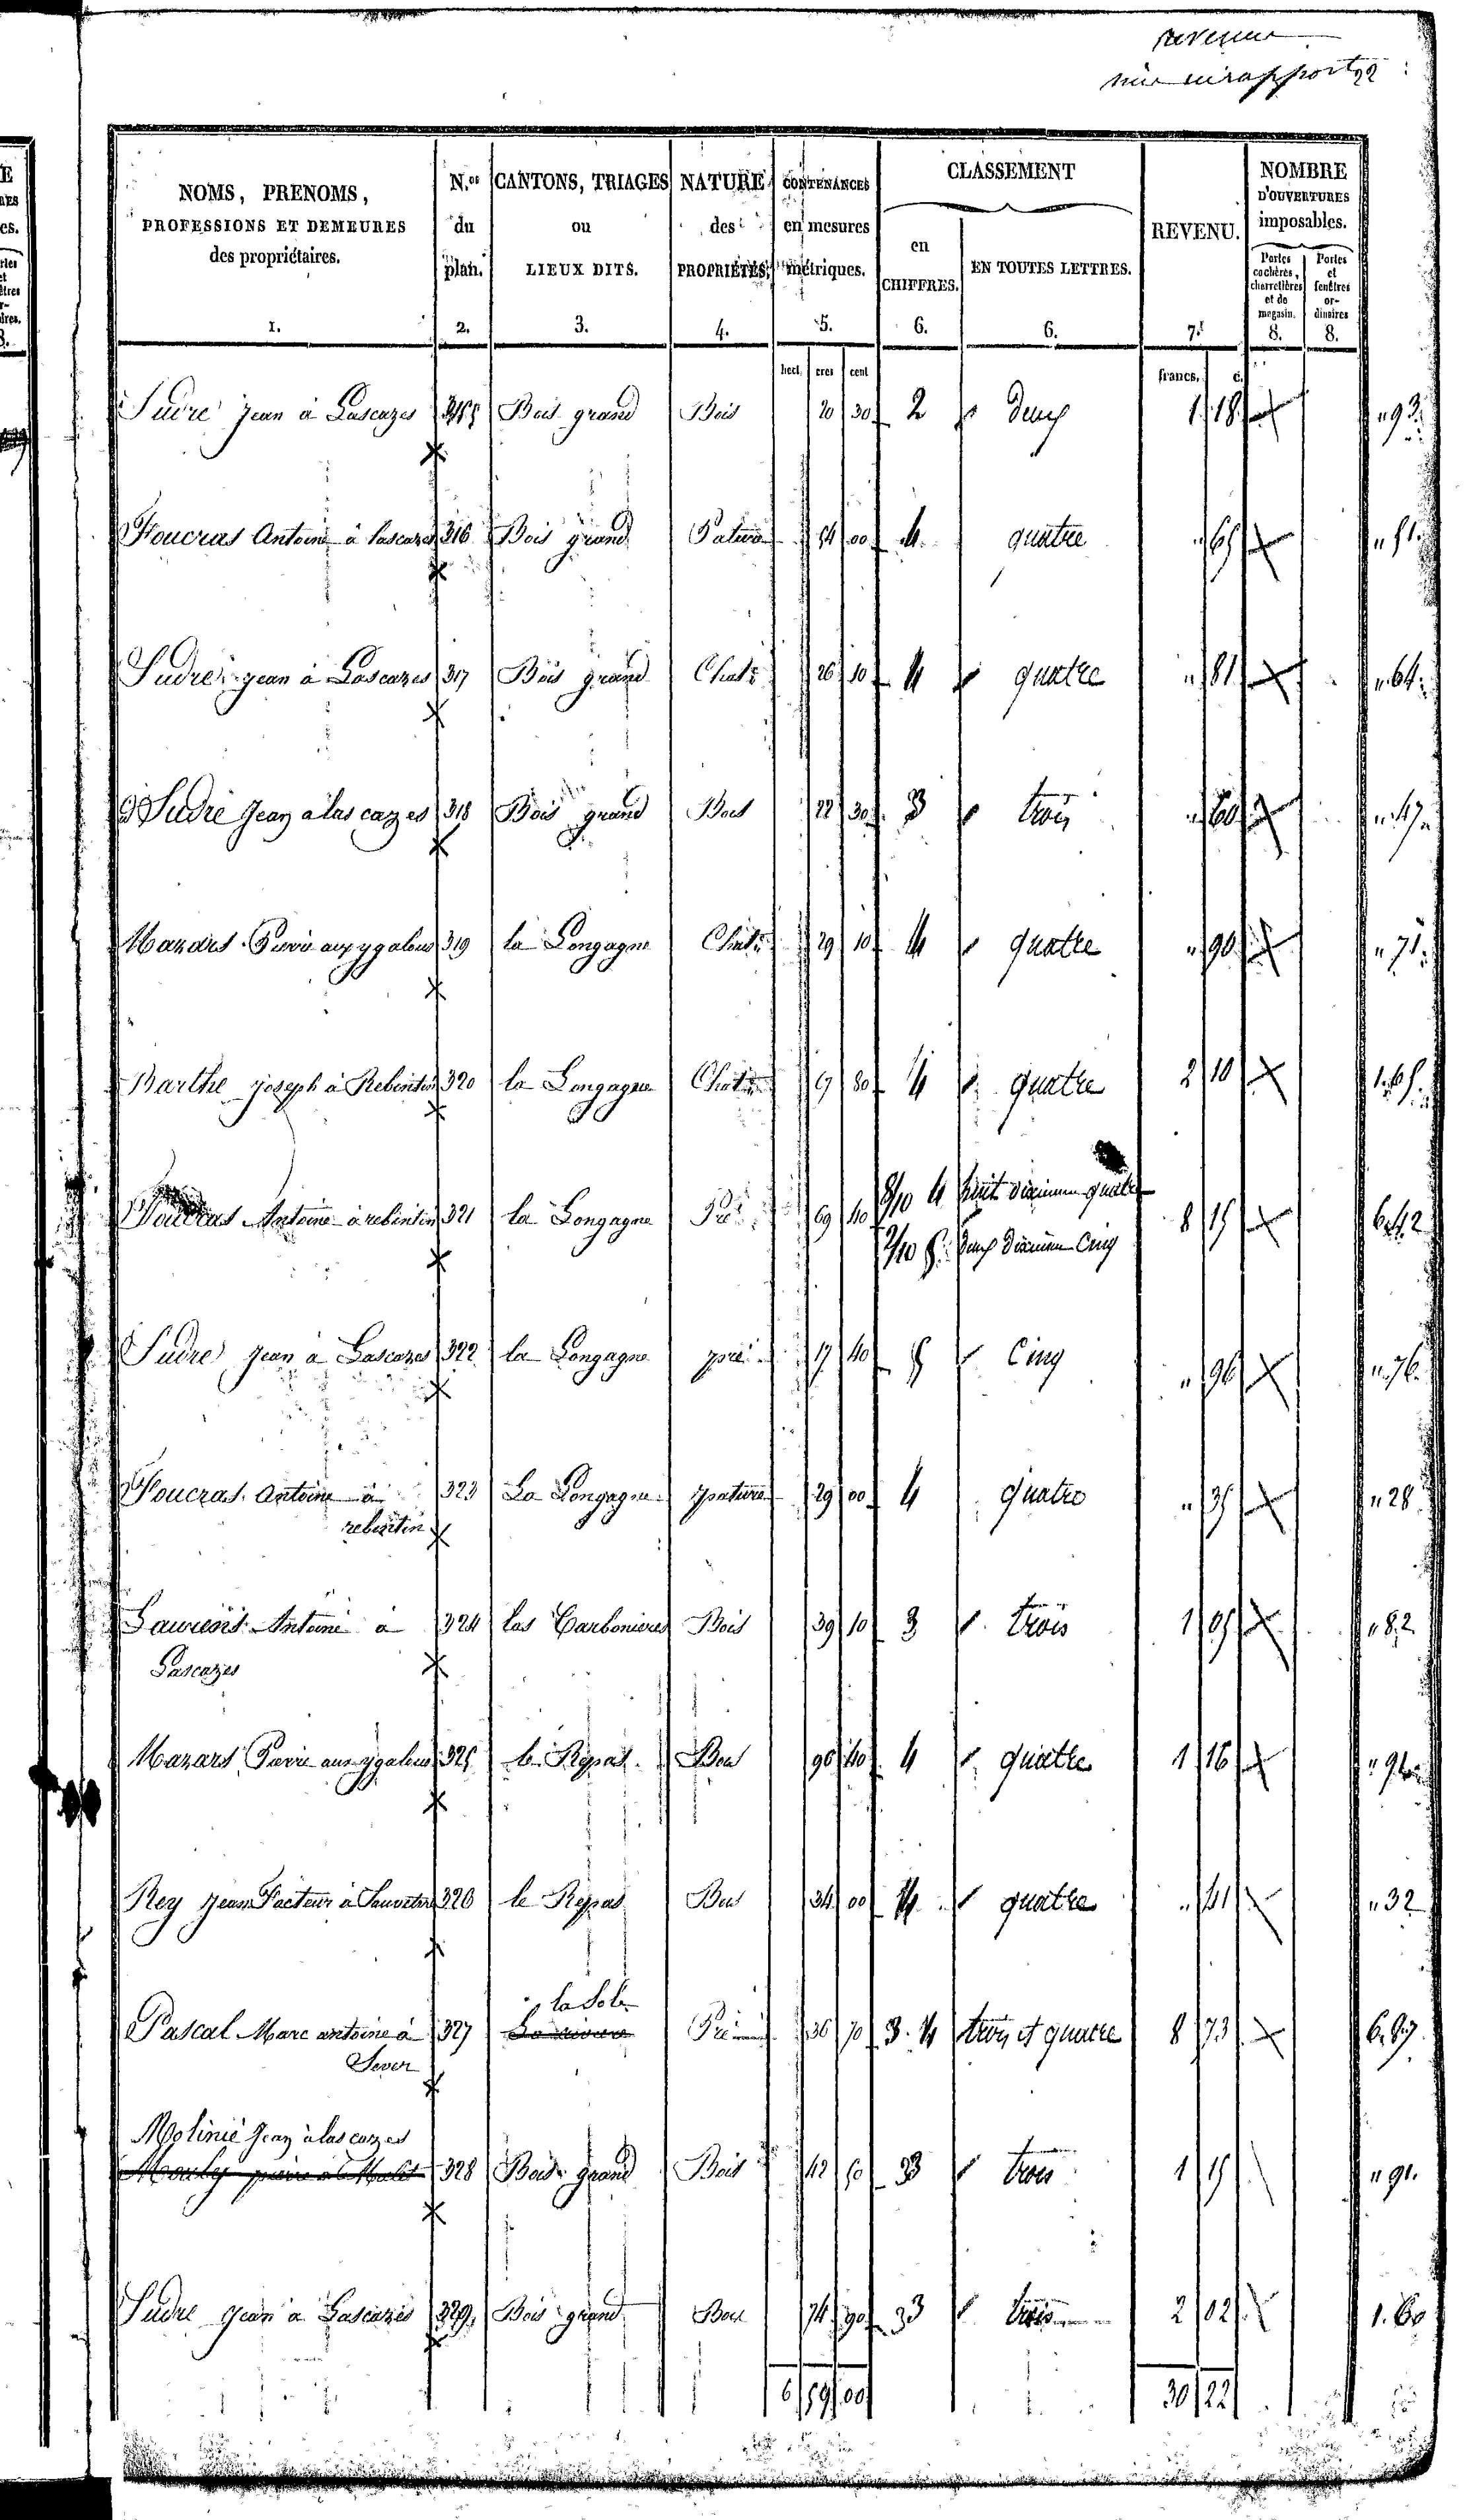 revenu
mis en rapport
NOMS, PRENOMS,
PROFESSIONS ET DEMEURES
des propriétaires.
1.
N.os
du
plan.
2.
CANTONS, TRIAGES
ou
LIEUX DITS.
3.
NATURE
des
PROPRIÉTÉS.
4.
CONTENANCES
en mesures
métriques.
5.
CLASSEMENT
en
CHIFFRES.
6.
EN TOUTES LETTRES.
6.
REVENU.
7.
NOMBRE
D'OUVERTURES
imposables.
Portes cochères, charretières et de magasin.
8.
Portes et fenêtres ordinaires
8.
hect. ares cent francs. c.
Sudre Jean à Lascazes 315 Bois grand Bois 20 30 2 deux 1 18 " 93
Foucras Antoine à Lascazes 316 Bois grand Pature 54 00 4 quatre " 65 " 51
Sudre jean à Lascazes 317 Bois grand Chat: 26 10 4 quatre " 81 " 64
Sudre Jean à las cazes 318 Bois grand Bois 22 30 3 trois " 60 " 47
Mazars Pierre aux ygalens 319 la Longagne Chat: 29 10 4 quatre " 90 " 71
Barthe joseph à Rebentin 320 la Longagne Chat: 67 80 4 quatre 2 10 1. 65
8/10 4 huit dixieme quatre
Foucras Antoine à rebentin 321 la Longagne Pré 69 40 8 15 6. 42
2/10 5 deux dixieme Cinq
Sudre Jean à Lascazes 322 la Longagne pré 17 40 5 Cinq " 96 " 76
Foucras Antoine à 323 La Longagne pature 29 00 4 quatre " 35 " 28
rebentin
Laurens Antoine à 324 las Carbonieres Bois 39 10 3 trois 1 05 " 82
Lascazes
Mazars Pierre aux ygalens 325 le Repas Bois 96 40 4 quatre 1 16 " 91
Rey Jean Facteur à Sauveterre 326 le Repas Bois 34 00 4 quatre " 41 " 32
la Sole
Pascal Marc antoine à 327 La riviere Pré 36 70 3. 4 trois et quatre 8 73 6. 87
Sever
Molinié Jean à las cazes
Mouly pierre à Malet 328 Bois grand Bois 42 50 3 trois 1 15 " 91
Sudre Jean à Lascazes 329 Bois grand Bois 74 90 3 trois 2 02 1. 60
6 59 00 30 22